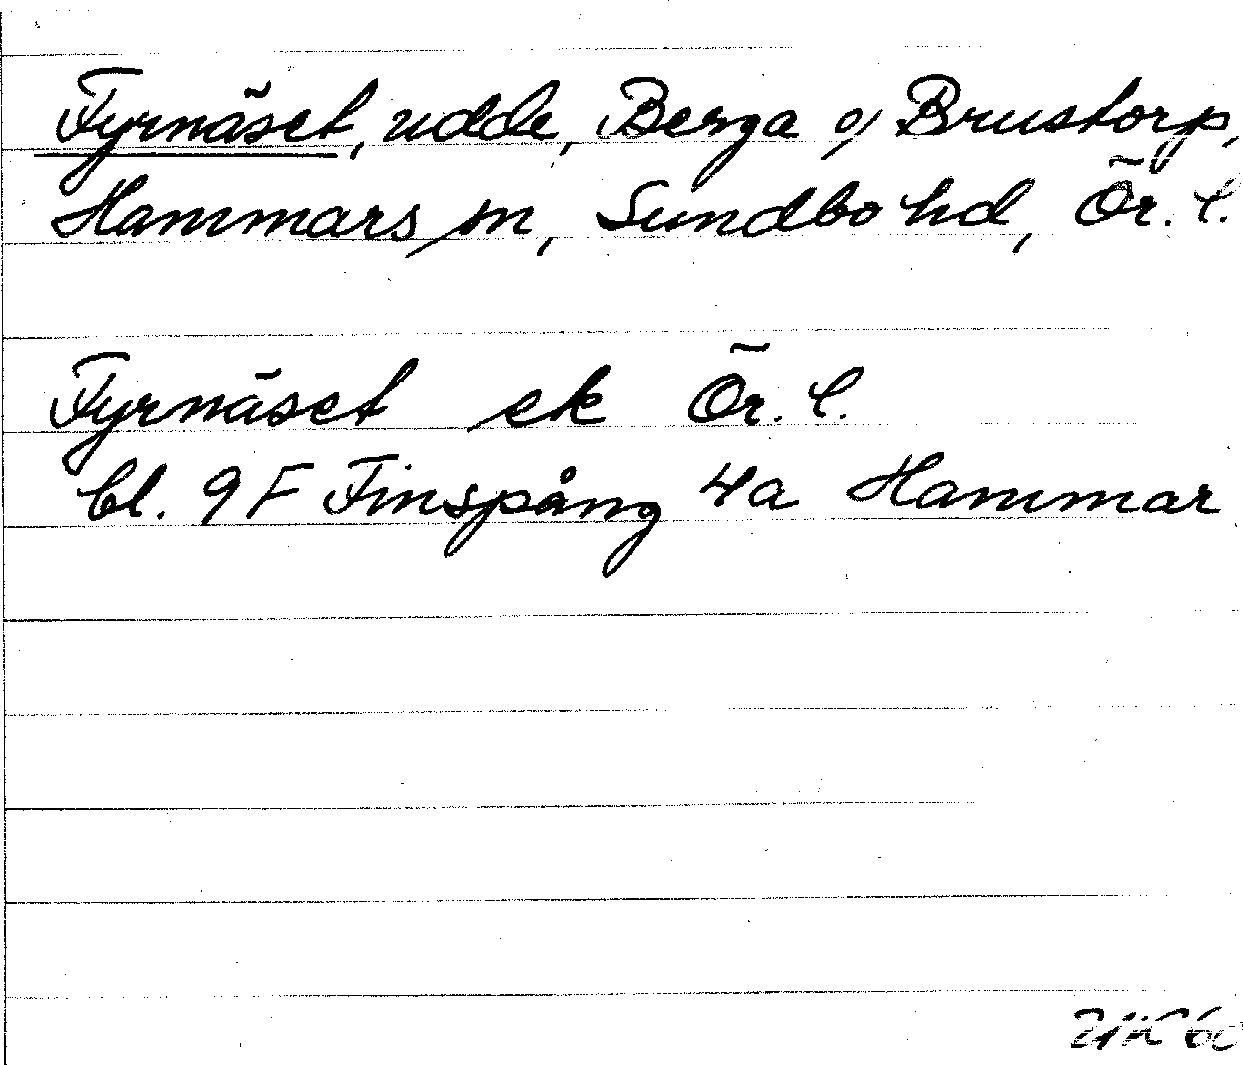 Fyrnäset, udde, Berga o/ Brustorp,
Hammars sn, Sundbo hd, Ör. l.
Fyrnäset ek Ör. l.
bl. 9F Finspång 4a Hammar